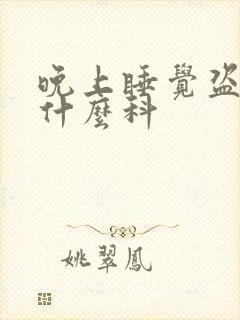 晚上睡覺盗
什麼科
姚翠鳳